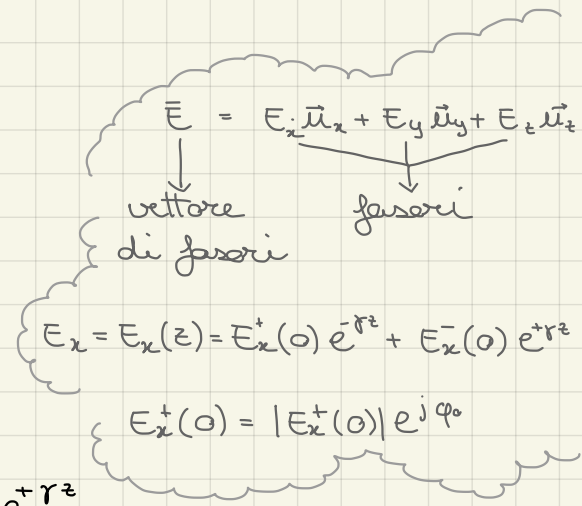 Ē = Eₓ u⃗ₓ + E_y u⃗_y + E_z u⃗_z
vettore fasori
di fasori
Eₓ = Eₓ(z) = Eₓ⁺(0) e^{-γz} + Eₓ⁻(0) e^{+γz}
Eₓ⁺(0) = |Eₓ⁺(0)| e^{jφ₀}
e^{+γz}